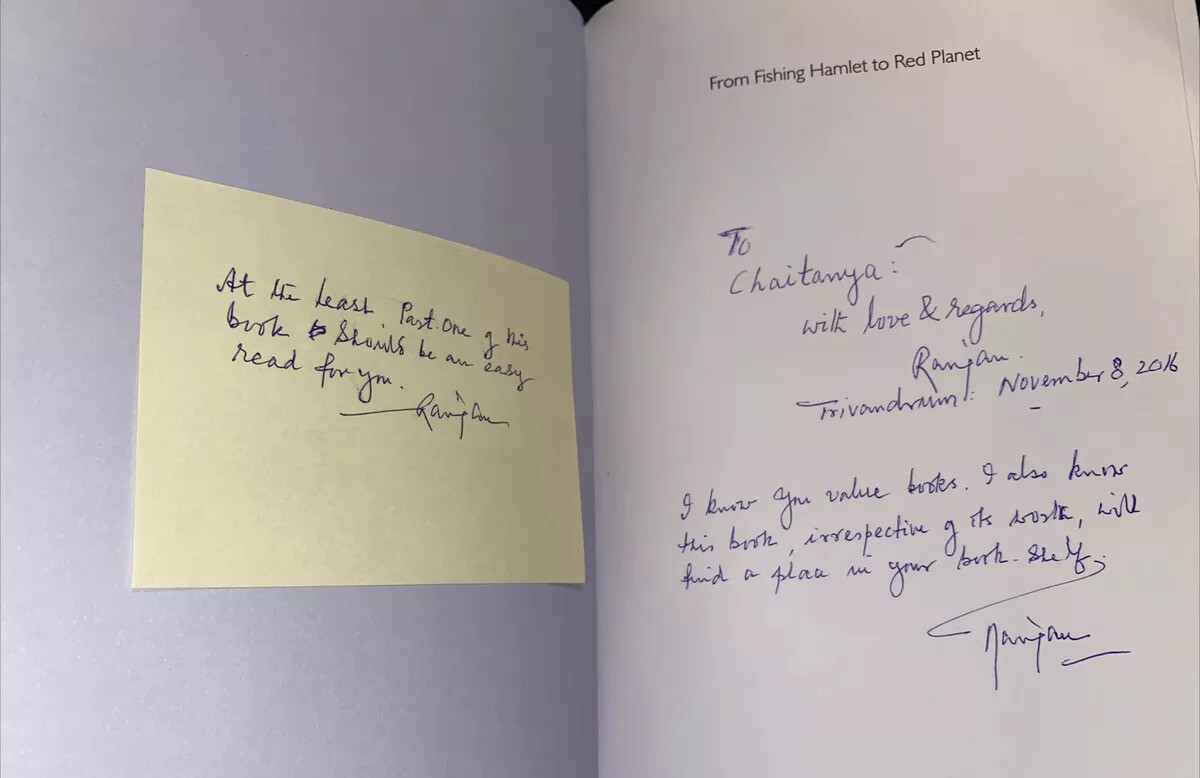 At the least, Part One of this
book should be an easy
read for you.
Ranjan
From Fishing Hamlet to Red Planet
To
Chaitanya:
with love & regards,
Ranjan.
Trivandrum: November 8, 2016
I know you value books. I also know
this book, irrespective of its worth, will
find a place in your book-shelf.
Ranjan